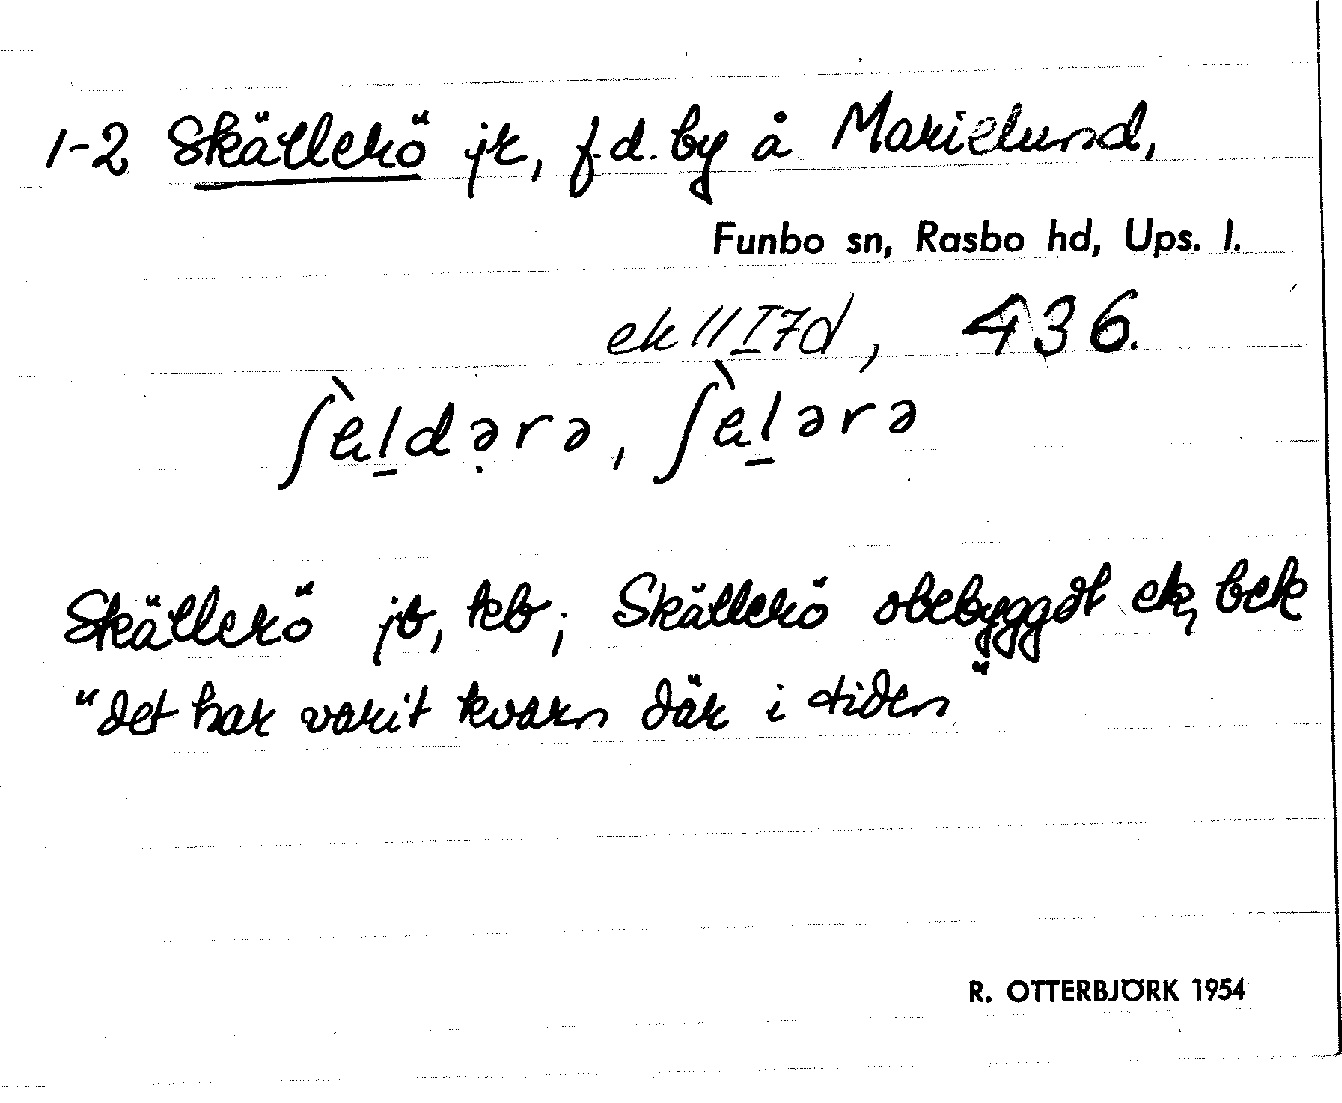 1-2 Skällerö jr, f.d. by å Marielund,
Funbo sn, Rasbo hd, Ups. l.
ek 11 I 7d, 436.
ʃὲḷdərə, ʃὲḷərə
Skällerö jb, teb; Skällerö obebyggt ek, bek
"det har varit kvarn där i tiden"
R. OTTERBJÖRK 1954